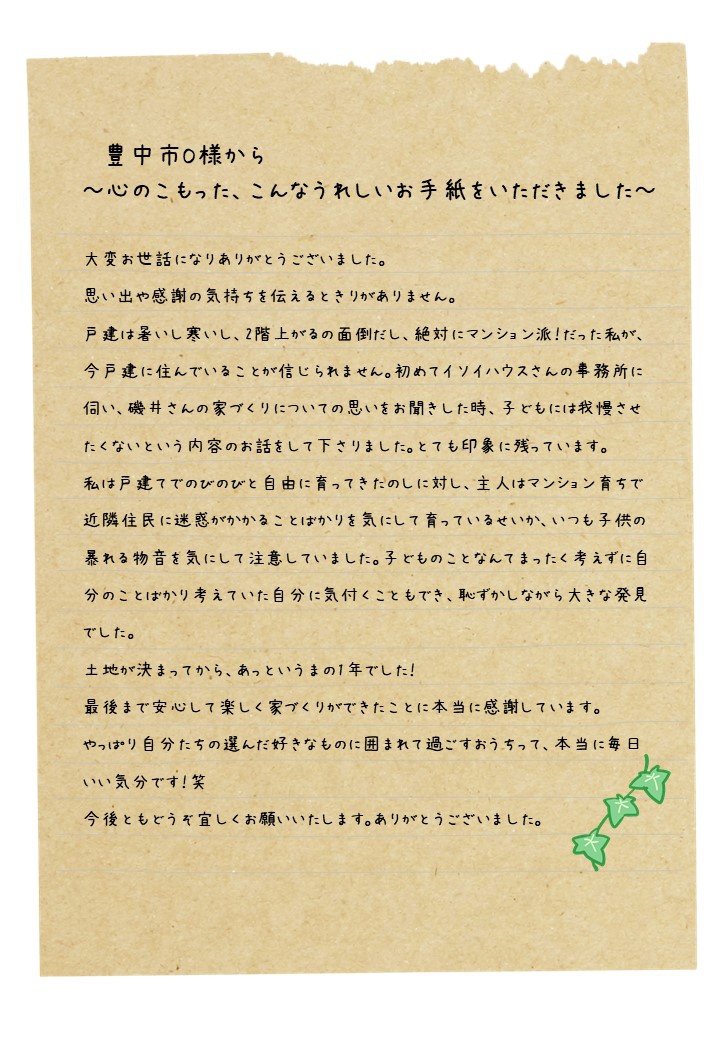 豊中市O様から
～心のこもった、こんなうれしいお手紙をいただきました～
大変お世話になりありがとうございました。
思い出や感謝の気持ちを伝えるときりがありません。
戸建は暑いし寒いし、2階上がるの面倒だし、絶対にマンション派！だった私が、
今戸建に住んでいることが信じられません。初めてイソイハウスさんの事務所に
伺い、磯井さんの家づくりについての思いをお聞きした時、子どもには我慢させ
たくないという内容のお話をして下さりました。とても印象に残っています。
私は戸建てでのびのびと自由に育ってきたのしに対し、主人はマンション育ちで
近隣住民に迷惑がかかることばかりを気にして育っているせいか、いつも子供の
暴れる物音を気にして注意していました。子どものことなんてまったく考えずに自
分のことばかり考えていた自分に気付くこともでき、恥ずかしながら大きな発見
でした。
土地が決まってから、あっというまの1年でした！
最後まで安心して楽しく家づくりができたことに本当に感謝しています。
やっぱり自分たちの選んだ好きなものに囲まれて過ごすおうちって、本当に毎日
いい気分です！笑
今後ともどうぞ宜しくお願いいたします。ありがとうございました。